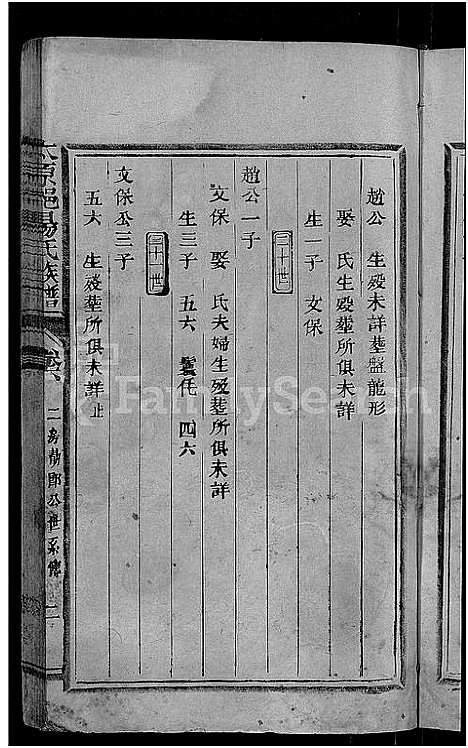 趙公 生歿未詳塟盤龍形
娶 氏生歿塟所俱未詳
生一子 文保
三十世
趙公一子
文保 娶 氏夫婦生歿塟所俱未詳
生三子 五六 四六
三十一世
文保公三子
五六 生歿塟所俱未詳止
太原邑楊氏族譜
卷
二房 郎公世系傳
二
FamilySearch